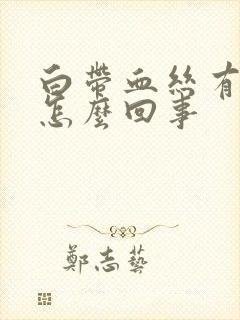 白帶血絲有
怎麼回事
鄭志藝